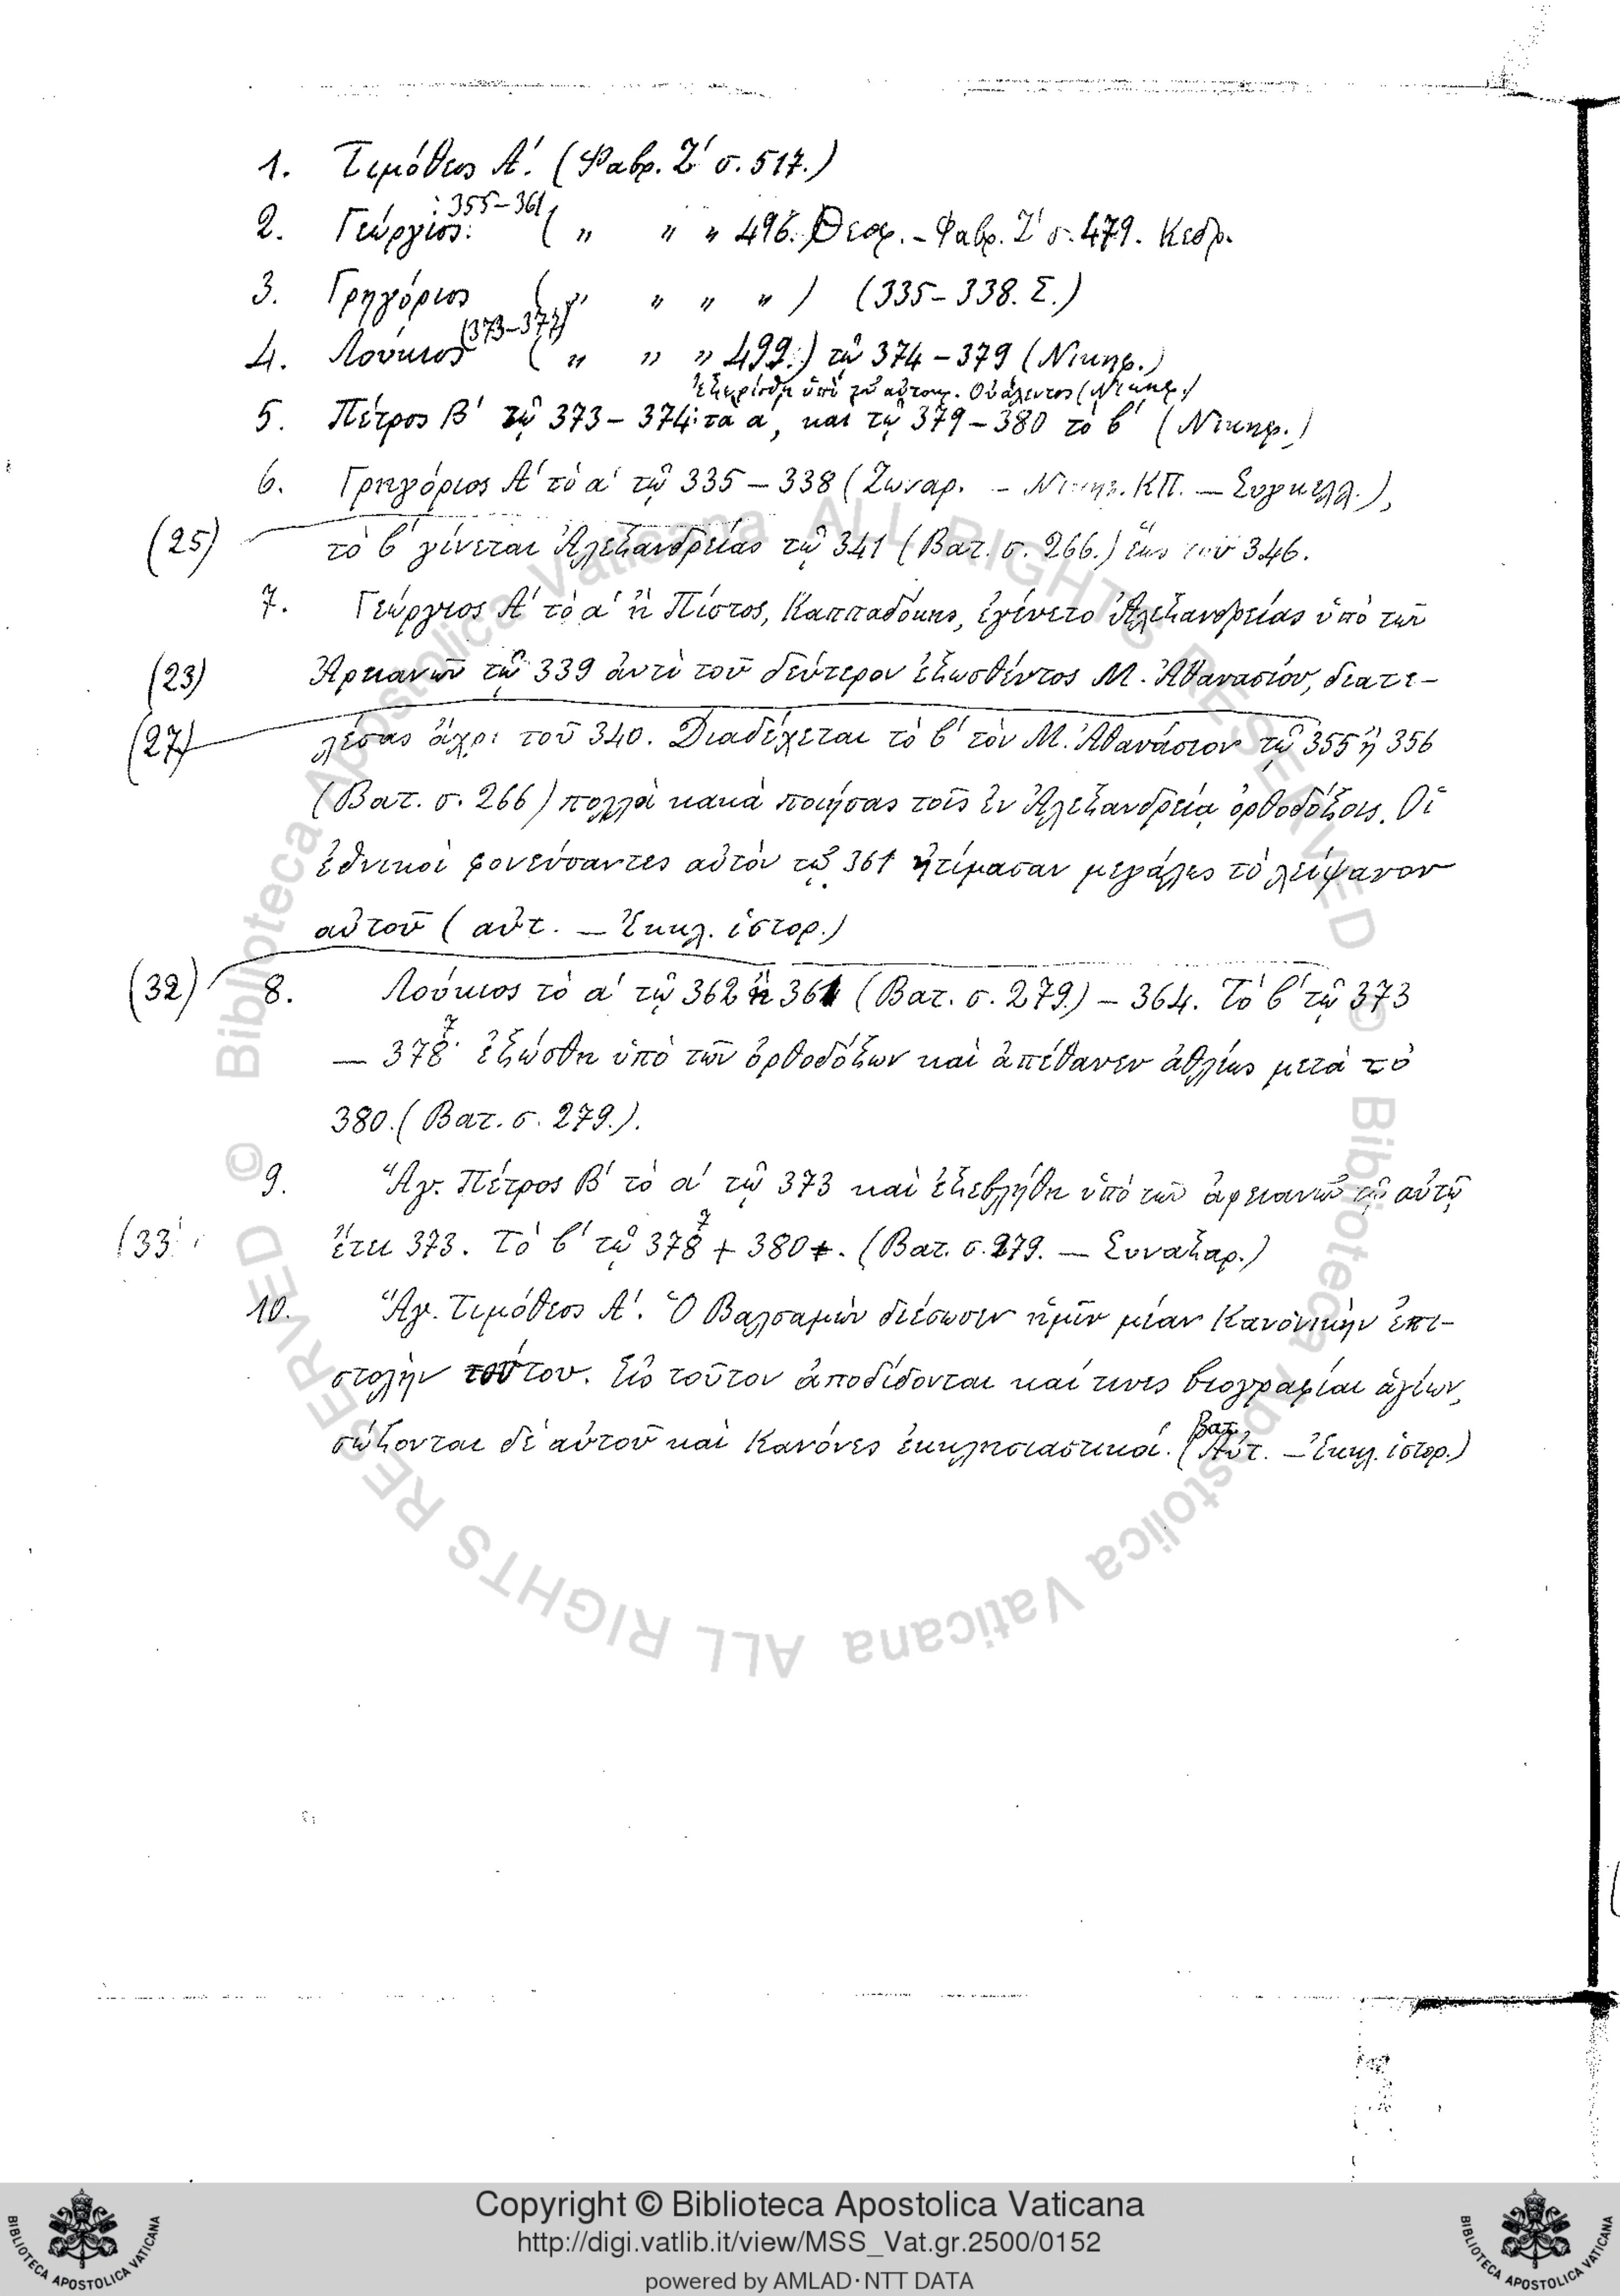 1. Τιμόθεος Α΄. (Φαβρ. Ζ΄ σ. 517.)
: 355-361
2. Γεώργιος. ( " " " 496. Θεοφ. - Φαβρ. Ζ΄ σ. 479. Κεδρ.
3. Γρηγόριος ( " " " " ) (335-338. Σ.)
(373-377)
4. Λούκιος ( " " " 499.) τῷ 374-379 (Νικηφ.)
Ἐξωρίσθη ὑπὸ τοῦ αὐτοκρ. Οὐάλεντος (Νικηφ.)
5. Πέτρος Β΄ τῷ 373-374: τὸ α΄, καὶ τῷ 379-380 τὸ β΄ (Νικηφ.)
6. Γρηγόριος Α΄ τὸ α΄ τῷ 335-338 (Ζωναρ. - Νικηφ. ΚΠ. - Συγκελλ.),
(25) τὸ β΄ γίνεται Ἀλεξανδρείας τῷ 341 (Βατ. σ. 266.) ἕως τοῦ 346.
7. Γεώργιος Α΄ τὸ α΄ ἢ Πίστος, Καππαδόκης, ἐγένετο Ἀλεξανδρείας ὑπὸ τῶν
(23) Ἀρειανῶν τῷ 339 ἀντὶ τοῦ δεύτερον ἐξωσθέντος Μ. Ἀθανασίου, διατε-
(27) λέσας ἄχρι τοῦ 340. Διαδέχεται τὸ β΄ τὸν Μ. Ἀθανάσιον τῷ 355 ἢ 356
(Βατ. σ. 266) πολλὰ κακὰ ποιήσας τοῖς ἐν Ἀλεξανδρείᾳ ὀρθοδόξοις. Οἱ
ἐθνικοὶ φονεύσαντες αὐτὸν τῷ 361 ἠτίμασαν μεγάλως τὸ λείψανον
αὐτοῦ (αὐτ. - Ἐκκλ. ἱστορ.)
(32) 8. Λούκιος τὸ α΄ τῷ 362 ἢ 361 (Βατ. σ. 279.) - 364. Τὸ β΄ τῷ 373
7
- 378· ἐξώσθη ὑπὸ τῶν ὀρθοδόξων καὶ ἀπέθανεν ἀθλίως μετὰ τὸ
380. (Βατ. σ. 279.).
9. Ἅγ. Πέτρος Β΄ τὸ α΄ τῷ 373 καὶ ἐξεβλήθη ὑπὸ τῶν ἀρειανῶν τῷ αὐτῷ
7
(33) ἔτει 373. Τὸ β΄ τῷ 378 + 380+. (Βατ. σ. 279. - Συναξαρ.)
10. Ἅγ. Τιμόθεος Α΄. Ὁ Βαλσαμὼν διέσωσεν ἡμῖν μίαν Κανονικὴν ἐπι-
στολὴν τούτου. Εἰς τοῦτον ἀποδίδονται καί τινες βιογραφίαι ἁγίων,
Βατ.
σώζονται δὲ αὐτοῦ καὶ Κανόνες ἐκκλησιαστικοί. (Αὐτ. - Ἐκκλ. ἱστορ.)
© Biblioteca Apostolica Vaticana ALL RIGHTS RESERVED © Biblioteca Apostolica Vaticana ALL RIGHTS RESERVED
Copyright © Biblioteca Apostolica Vaticana
http://digi.vatlib.it/view/MSS_Vat.gr.2500/0152
powered by AMLAD·NTT DATA
BIBLIOTECA APOSTOLICA VATICANA
BIBLIOTECA APOSTOLICA VATICANA